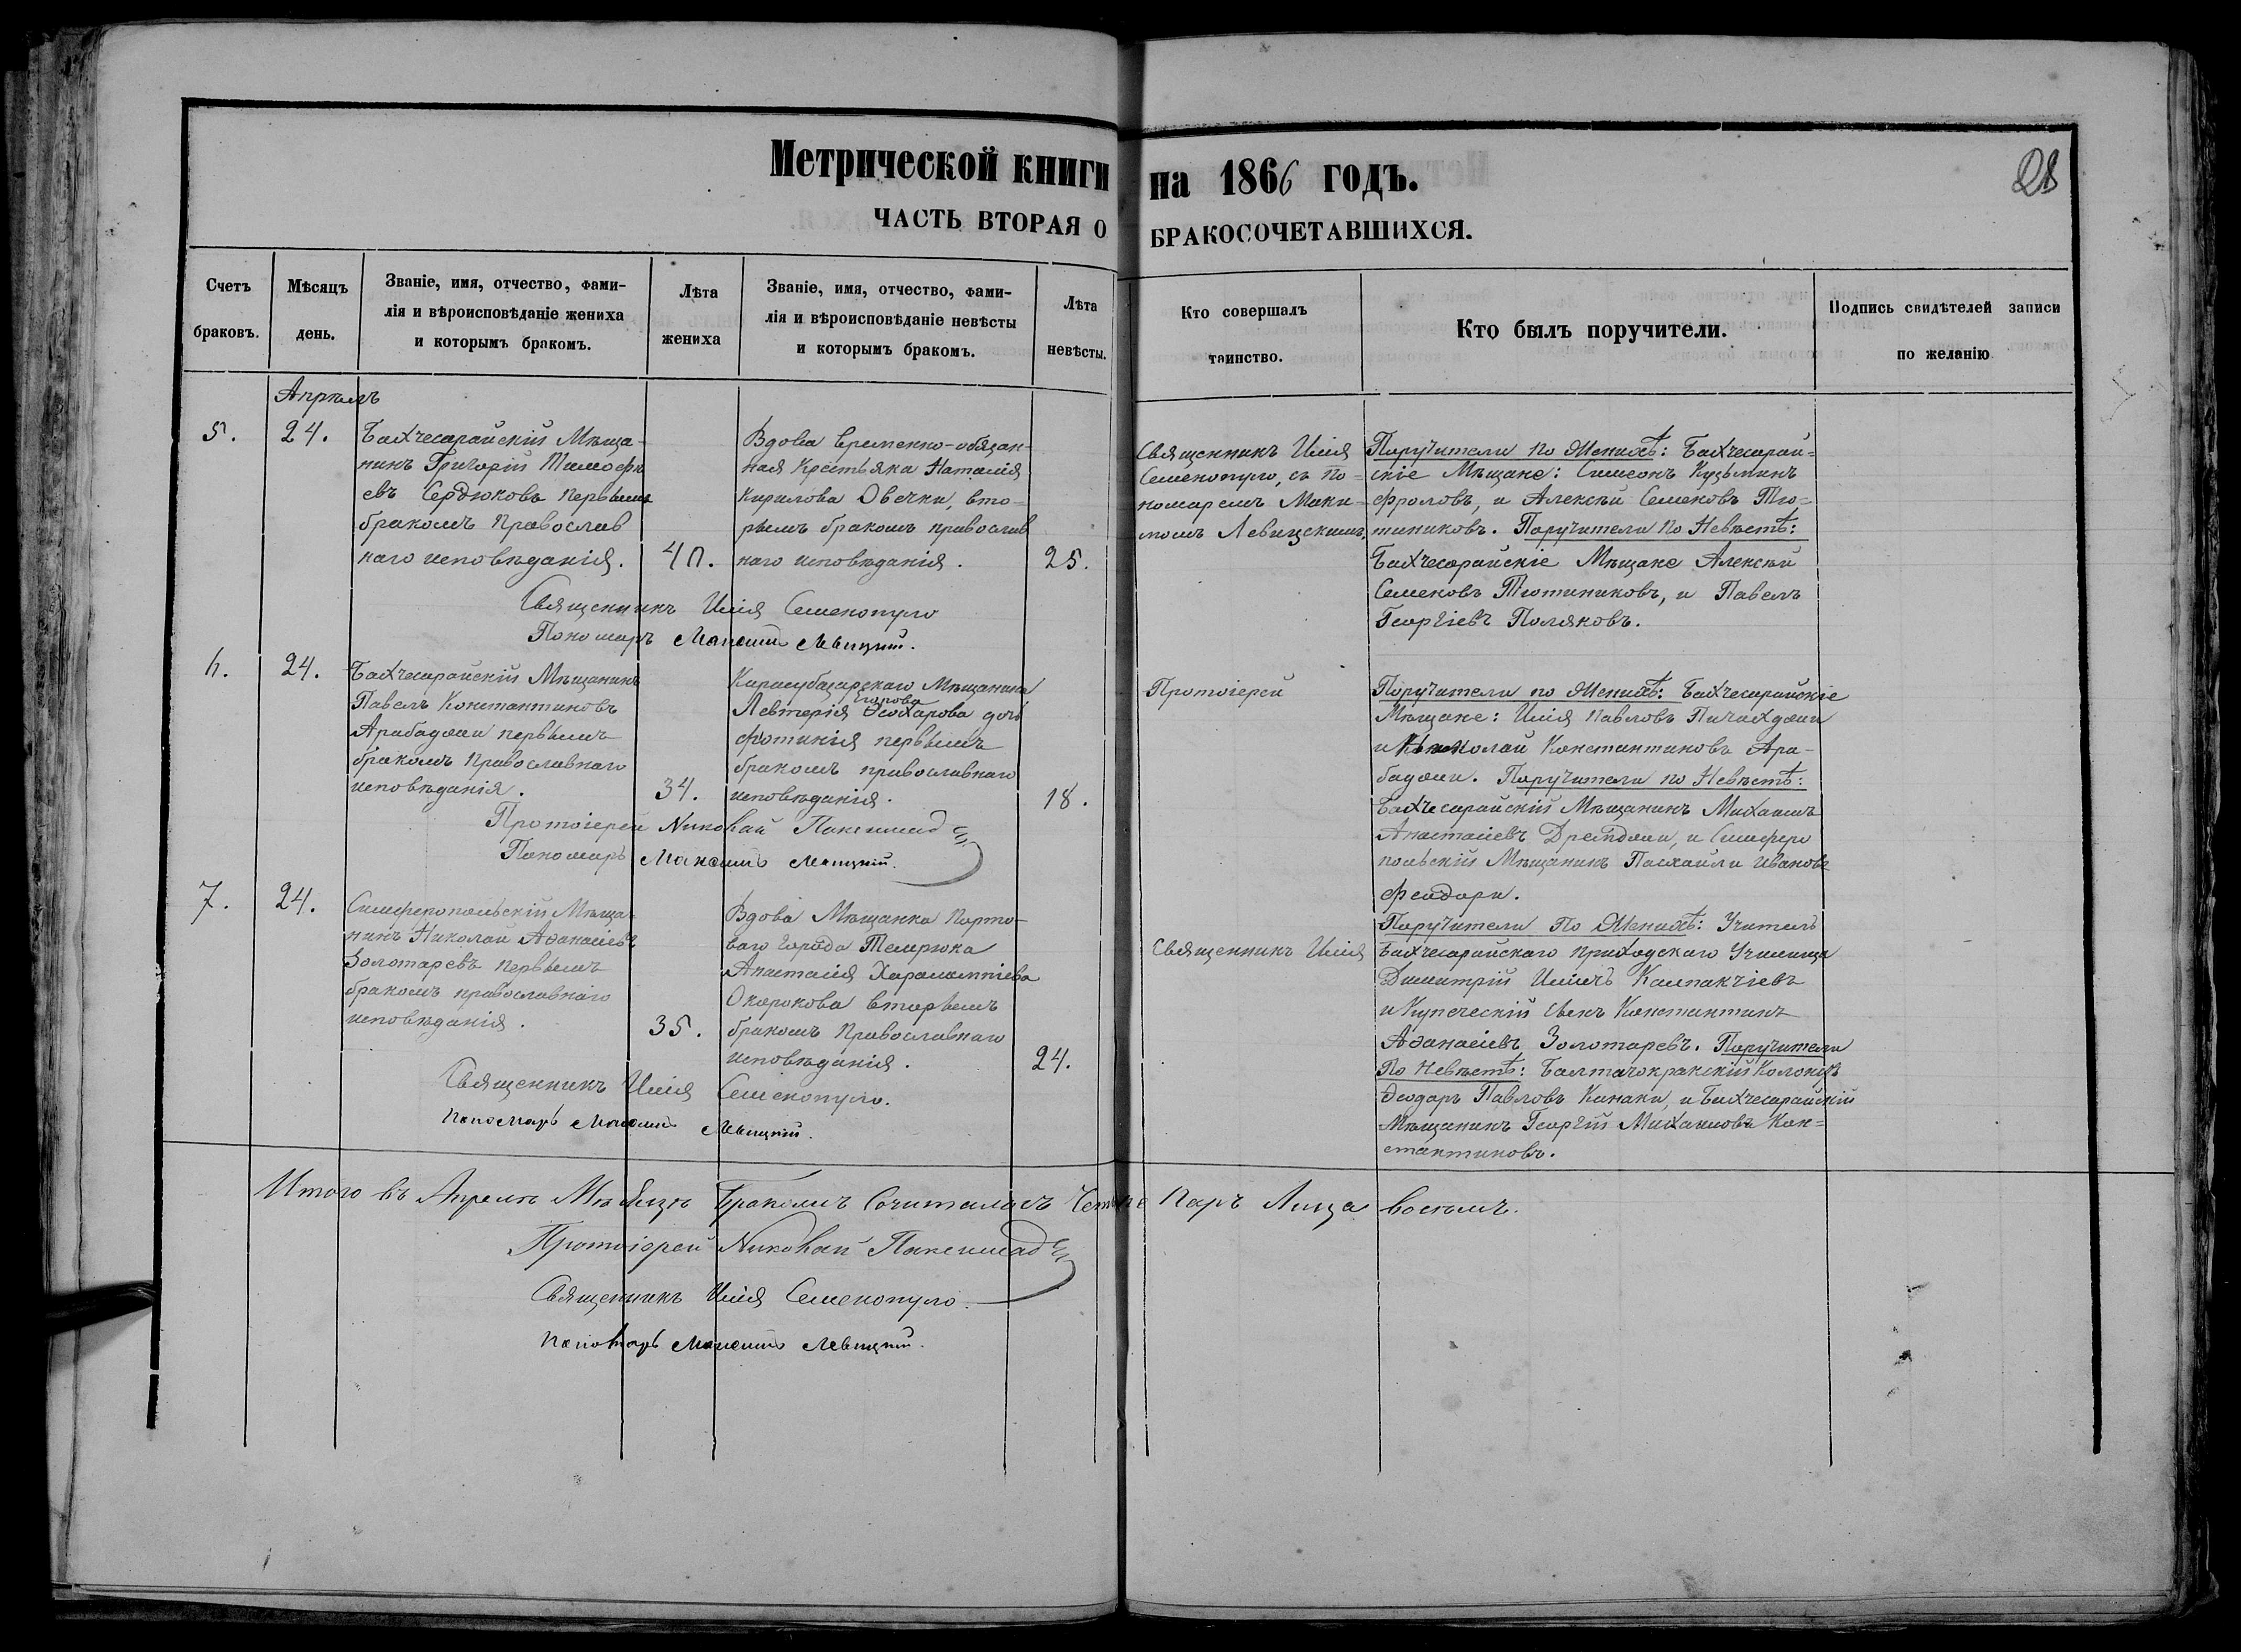 Метрической книги на 1866 годъ.
28
ЧАСТЬ ВТОРАЯ О БРАКОСОЧЕТАВШИХСЯ.
Счетъ браковъ.
Мѣсяцъ день.
Званіе, имя, отчество, фами-
лія и вѣроисповѣданіе жениха
и которымъ бракомъ.
Лѣта жениха
Званіе, имя, отчество, фами-
лія и вѣроисповѣданіе невѣсты
и которымъ бракомъ.
Лѣта невѣсты.
Кто совершалъ
таинство.
Кто былъ поручители.
Подпись свидѣтелей записи
по желанію
Апрѣль
5.
24.
Бахчесарайскій Мѣща-
нинъ Григорій Тимофѣ
евъ Сердюковъ первымъ
бракомъ православ
наго исповѣданія.
40.
Вдова временно-обязан-
ная Крестьянка Наталія
Кирилова Овечки, вто-
рымъ бракомъ православ
наго исповѣданія.
25.
Священникъ Илія
Семенопуло, съ По-
номаремъ Макси-
момъ Левицкимъ.
Поручители по Женихѣ: Бахчесарай-
скіе Мѣщане: Симеонъ Кузьминъ
Фроловъ, и Алексѣй Семеновъ Тю-
тюниковъ. Поручители по Невѣстѣ:
Бахчесарайскіе Мѣщане Алексѣй
Семеновъ Тютюниковъ, и Павелъ
Георгіевъ Поляковъ.
Священникъ Илія Семенопуло
Пономарь Максимъ Левицкій.
6.
24.
Бахчесарайскій Мѣщанинъ
Павелъ Константиновъ
Арабаджи первымъ
бракомъ православнаго
исповѣданія.
34.
Карасубазарскаго Мѣщанина
Левтерія Ѳеохарова дочь
Фотинія первымъ
бракомъ православнаго
исповѣданія.
18.
Протоіерей
Поручители по Женихѣ: Бахчесарайскіе
Мѣщане: Илія Павловъ Пичахджи
и Николай Константиновъ Ара-
баджи. Поручители по Невѣстѣ:
Бахчесарайскій Мѣщанинъ Михаилъ
Анастасіевъ, и Симферо
польскій Мѣщанинъ Пасхали Ивановъ
Феодори.
Протоіерей Николай
Пономарь Максимъ Левицкій.
7.
24.
Симферопольскій Мѣща-
нинъ Николай Аѳанасіевъ
Золотаревъ первымъ
бракомъ православнаго
исповѣданія.
35.
Вдова Мѣщанка порто-
ваго города Темрюка
Анастасія Харалампіева
Окорокова вторымъ
бракомъ православнаго
исповѣданія.
24.
Священникъ Илія
Поручители По Женихѣ: Учитель
Бахчесарайскаго приходскаго Училища
Димитрій Ильичъ Калпакчіевъ
и Купеческій сынъ Константинъ
Аѳанасіевъ Золотаревъ. Поручители
По Невѣстѣ: Балтачокракскій Колонистъ
Ѳеодоръ Павловъ Канаки, и Бахчесарайскій
Мѣщанинъ Георгій Михаиловъ Кон-
стантиновъ.
Священникъ Илія Семенопуло.
Пономарь Максимъ Левицкій.
Итого въ Апрелѣ Мѣсяцѣ Бракомъ Сочиталось Четыре Паръ Лица восемь.
Протоіерей Николай
Священникъ Илія Семенопуло.
Пономарь Максимъ Левицкій.